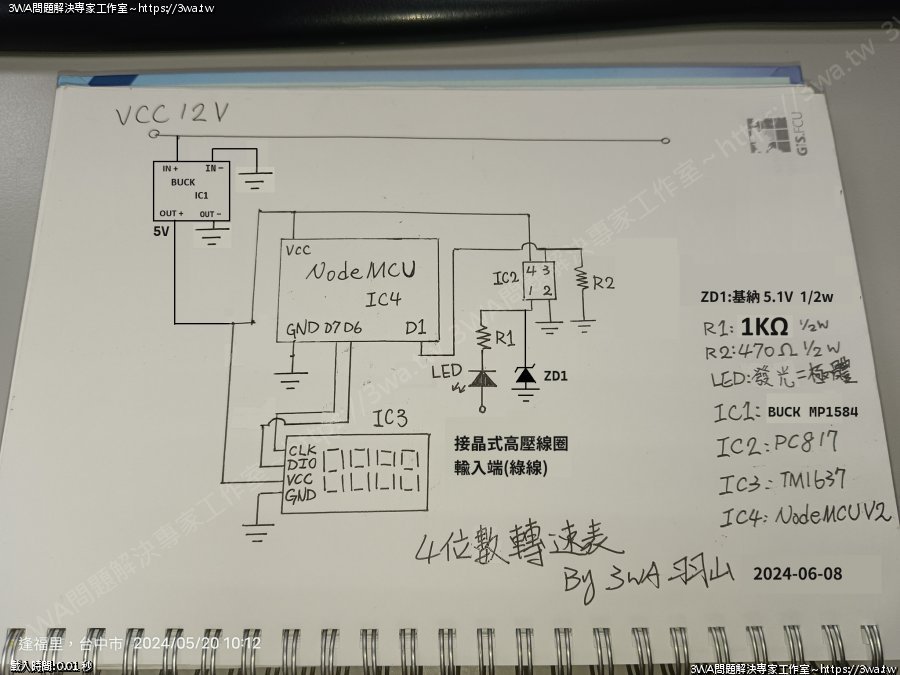 3WA問題解決專家工作室~https://3wa.tw
VCC 12V
GIS.FCU
IN + IN -
BUCK
IC1
OUT + OUT -
5V
VCC
NodeMCU
IC4
GND D7 D6 D1
IC2
4 3
1 2
R2
R1
LED
ZD1
ZD1:基納 5.1V 1/2w
R1: 1KΩ 1/2W
R2:470Ω 1/2W
LED:發光二極體
IC1: BUCK MP1584
IC2:PC817
IC3:TM1637
IC4:NodeMCUV2
IC3
CLK
DIO
VCC
GND
接晶式高壓線圈
輸入端(綠線)
4位數轉速表
By 3WA 羽山 2024-06-08
逢福里,台中市 2024/05/20 10:12
載入時間:0.01 秒
3WA問題解決專家工作室~https://3wa.tw